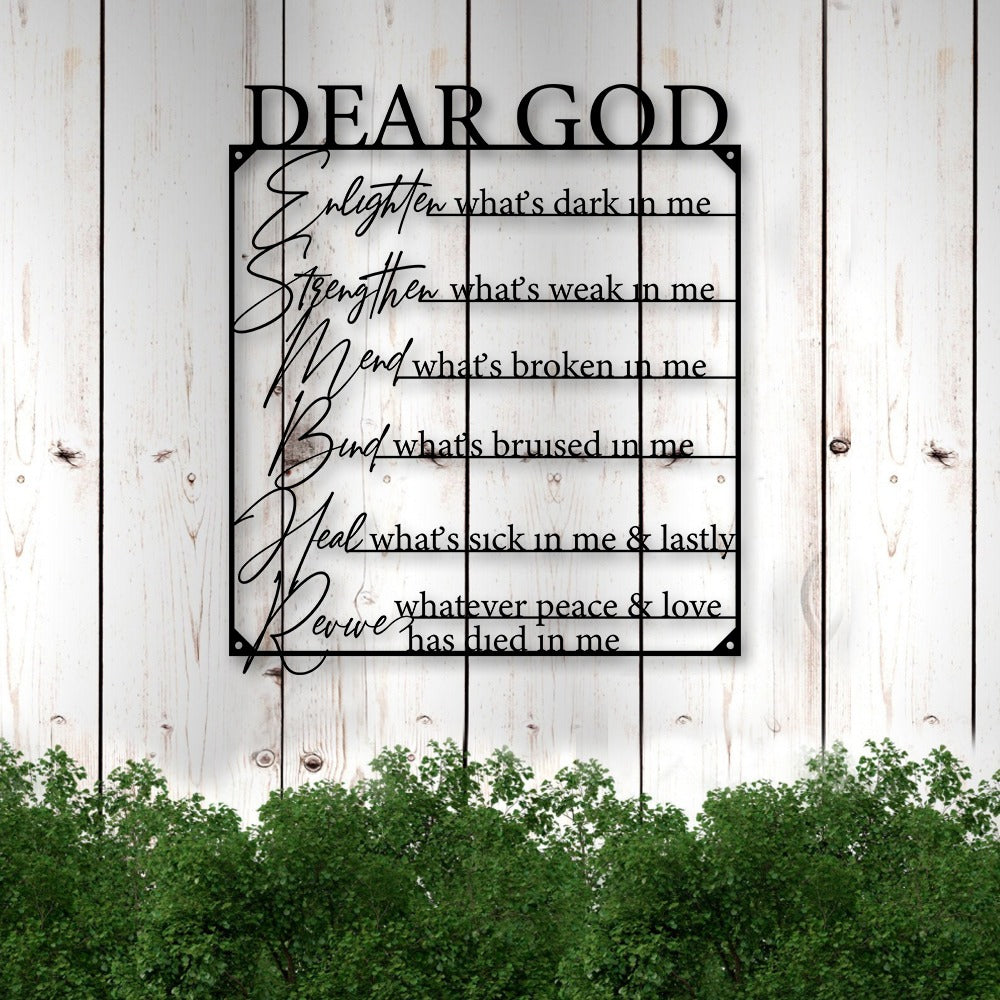 DEAR GOD
Enlighten what's dark in me
Strengthen what's weak in me
Mend what's broken in me
Bind what's bruised in me
Heal what's sick in me & lastly
Revive whatever peace & love
has died in me